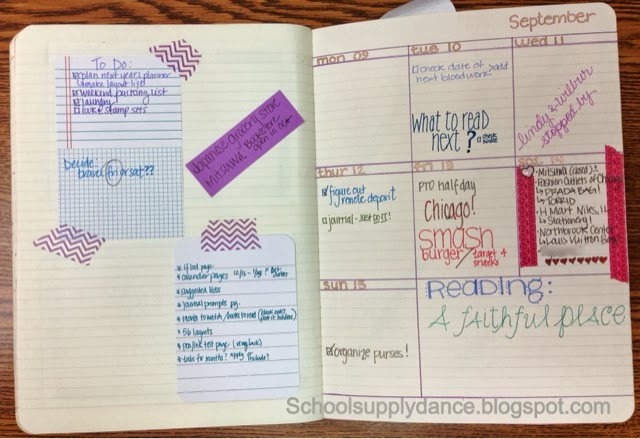 To Do:
plan next years planner
make layout list
weekend packing list
laundry
look @ stamp sets
Decide:
travel fri or sat??
Japanese grocery store
Mitsuwa
Bookstore
open 10
1st page
calendar pages
suggested lists
journal prompts pg.
56 layouts
pen/ink test page (very back)
tabs for months?
include?
September
mon 09
tue 10
wed 11
check date of
add
next bloodwork
what to read
next?
check
kindle
Lindy & Wilbur
stopped by
thur 12
fri 13
sat 14
figure out
remote deposit
journal - just do it!
PTO half day
Chicago!
smash
burger/target 4
snacks
Mitsuwa (closed)
Fashion Outlets of Chicago
↳ PRADA BAG!
↳ TORRID
H Mart Niles, IL
↳ Stationery!
Northbrook Center
↳ Louis Vuitton Bag!
sun 15
Reading:
A faithful place
organize purses!
Schoolsupplydance.blogspot.com